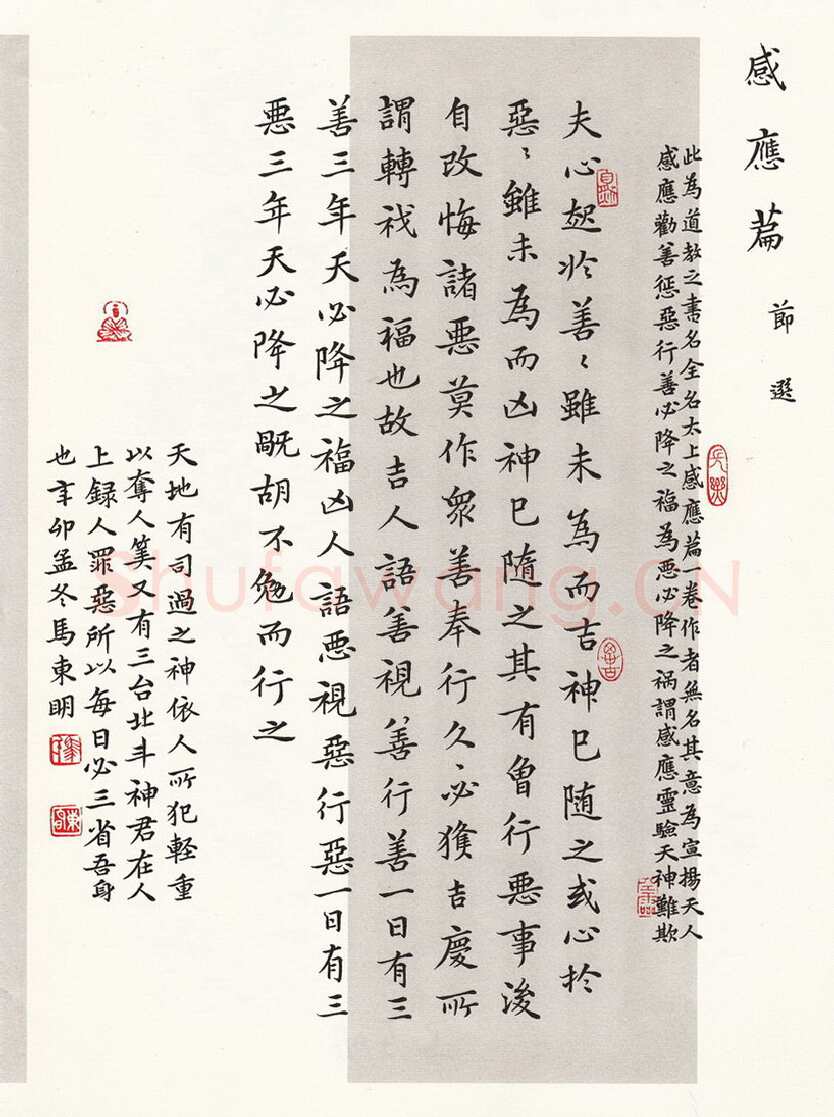 感應篇 節選
此為道教之書名全名太上感應篇一卷作者無名其意為宣揚天人
感應勸善惩惡行善必降之福為悪必降之祸謂感應靈驗天神難欺
夫心起於善〻雖未為而吉神已随之或心於
惡〻雖未為而凶神已隨之其有曾行悪事後
自改悔諸悪莫作衆善奉行久〻必獲吉慶所
謂轉禍為福也故吉人語善視善行善一日有三
善三年天必降之福凶人語悪視惡行惡一日有三
悪三年天必降之禍胡不勉而行之
天地有司過之神依人所犯軽重
以奪人算又有三台北斗神君在人
上録人罪惡所以每日必三省吾身
也辛卯孟冬馬東明
Shufawang.CN